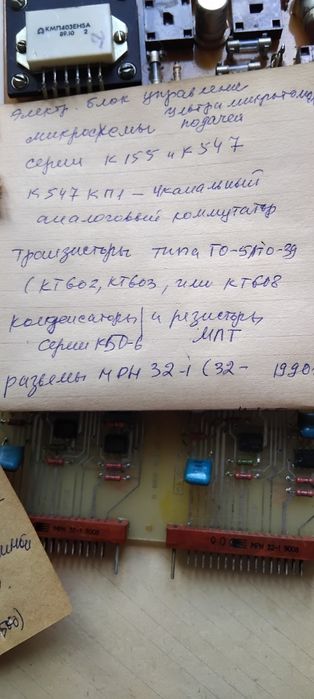 КМП403ЕН5А
89.10 2
электр. блок управление
ультрамикротома
микросхемы подачей
серии К155 и К547
К547 КП1 - 4 канальный
аналоговый коммутатор
транзисторы типа ТО-5/ТО-39
(КТ602, КТ603, или КТ608
конденсаторы и резисторы
серии К50-6 МЛТ
разъемы МРН 32-1 (32- 1990г
МРН 32-1 9008
МРН 32-1 9008